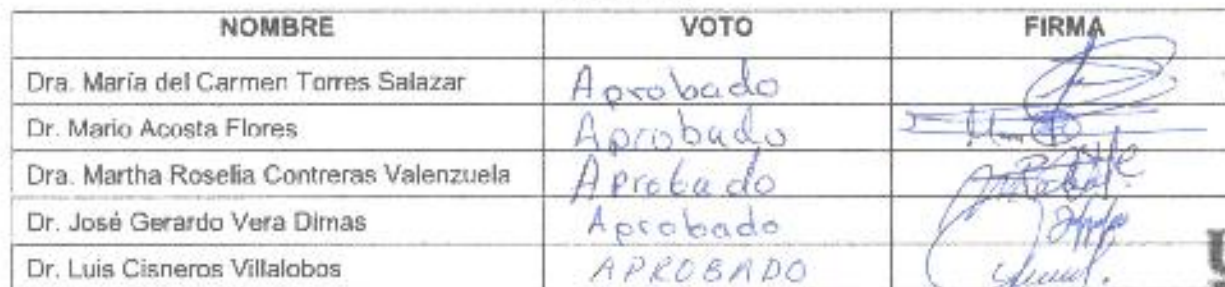 NOMBRE VOTO FIRMA
Dra. María del Carmen Torres Salazar Aprobado
Dr. Mario Acosta Flores Aprobado
Dra. Martha Roselia Contreras Valenzuela Aprobado
Dr. José Gerardo Vera Dimas Aprobado
Dr. Luis Cisneros Villalobos APROBADO